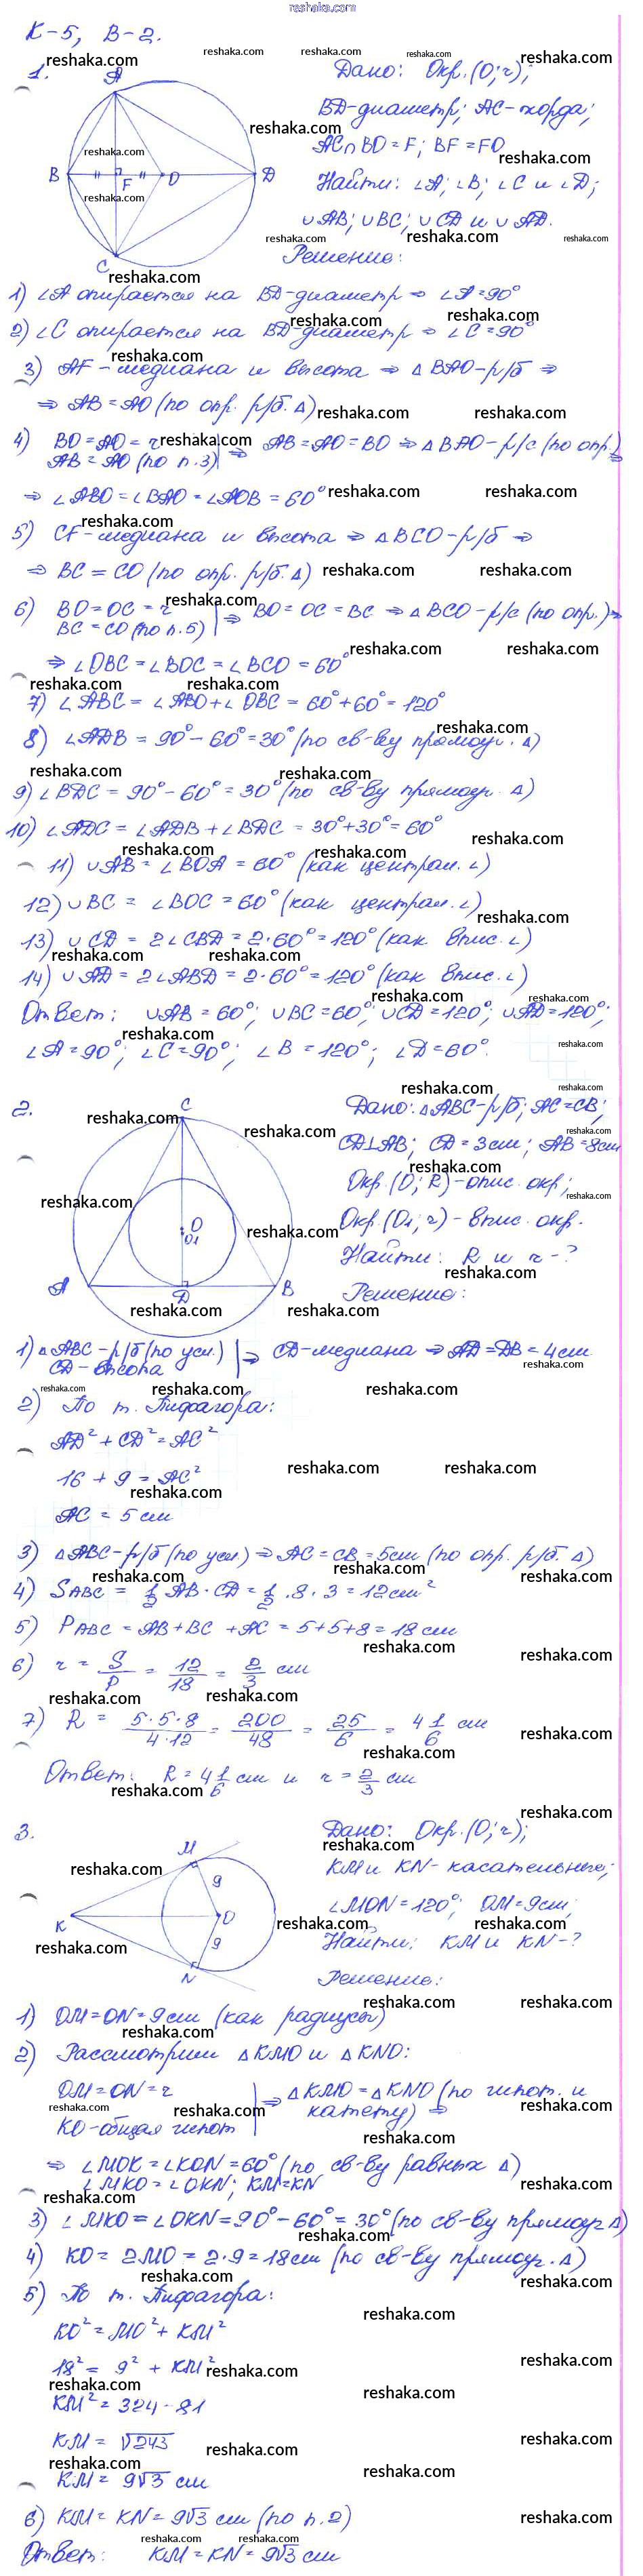 reshaka.com
К-5, В-2.
1.
Дано: Окр.(О;r);
BD-диаметр; AC-хорда;
AC∩BO=F; BF=FO
Найти: ∠A; ∠B; ∠C и ∠D;
∪AB; ∪BC; ∪CD и ∪AD.
Решение:
A
B
F
O
D
C
1) ∠A опирается на BD-диаметр ⇒ ∠A=90°
2) ∠C опирается на BD-диаметр ⇒ ∠C=90°
3) AF-медиана и высота ⇒ △BAO-р/б ⇒
⇒ AB=AO (по опр. р/б. △)
4) BO=AO=r
AB=AO (по п.3) | ⇒ AB=AO=BO ⇒ △BAO-р/с (по опр.) ⇒
⇒ ∠ABO=∠BAO=∠AOB=60°
5) CF-медиана и высота ⇒ △BCO-р/б ⇒
⇒ BC=CO (по опр. р/б. △)
6) BO=OC=r
BC=CO (по п.5) | ⇒ BO=OC=BC ⇒ △BCO-р/с (по опр.) ⇒
⇒ ∠OBC=∠BOC=∠BCO=60°
7) ∠ABC=∠ABO+∠OBC=60°+60°=120°
8) ∠ADB=90°-60°=30° (по св-ву прямоуг. △)
9) ∠BDC=90°-60°=30° (по св-ву прямоуг. △)
10) ∠ADC=∠ADB+∠BDC=30°+30°=60°
11) ∪AB=∠BOA=60° (как централ. ∠)
12) ∪BC=∠BOC=60° (как централ. ∠)
13) ∪CD=2∠CBD=2·60°=120° (как впис. ∠)
14) ∪AD=2∠ABD=2·60°=120° (как впис. ∠)
Ответ: ∪AB=60°; ∪BC=60°; ∪CD=120°; ∪AD=120°;
∠A=90°; ∠C=90°; ∠B=120°; ∠D=60°.
2.
Дано: △ABC-р/б; AC=CB;
CD⊥AB; CD=3см; AB=8см
Окр.(O; R)-опис. окр;
Окр.(O1; r)-впис. окр.
Найти: R и r-?
Решение:
C
O
O1
A
D
B
1) △ABC-р/б (по усл.)
CD-высота | ⇒ CD-медиана ⇒ AD=DB=4см
2) По т. Пифагора:
AD²+CD²=AC²
16+9=AC²
AC=5см
3) △ABC-р/б (по усл.) ⇒ AC=CB=5см (по опр. р/б. △)
4) SABC = 1/2 AB·CD = 1/2 ·8·3=12см²
5) PABC=AB+BC+AC=5+5+8=18см
6) r = S/P = 12/18 = 2/3 см
7) R = 5·5·8/4·12 = 200/48 = 25/6 = 4 1/6 см
Ответ: R=4 1/6 см и r=2/3 см
3.
Дано: Окр.(О;r);
KM и KN-касательные;
∠MON=120°; OM=9см;
Найти: KM и KN-?
Решение:
M
9
K
O
9
N
1) OM=ON=9см (как радиусы)
2) Рассмотрим △KMO и △KNO:
OM=ON=r
KO-общая гипот | ⇒ △KMO=△KNO (по гипот. и
катету) ⇒
⇒ ∠MOK=∠KON=60° (по св-ву равных △)
∠MKO=∠OKN; KM=KN
3) ∠MKO=∠OKN=90°-60°=30° (по св-ву прямоуг △)
4) KO=2MO=2·9=18см (по св-ву прямоуг. △)
5) По т. Пифагора:
KO²=MO²+KM²
18²=9²+KM²
KM²=324-81
KM=√243
KM=9√3 см
6) KM=KN=9√3 см (по п.2)
Ответ: KM=KN=9√3 см